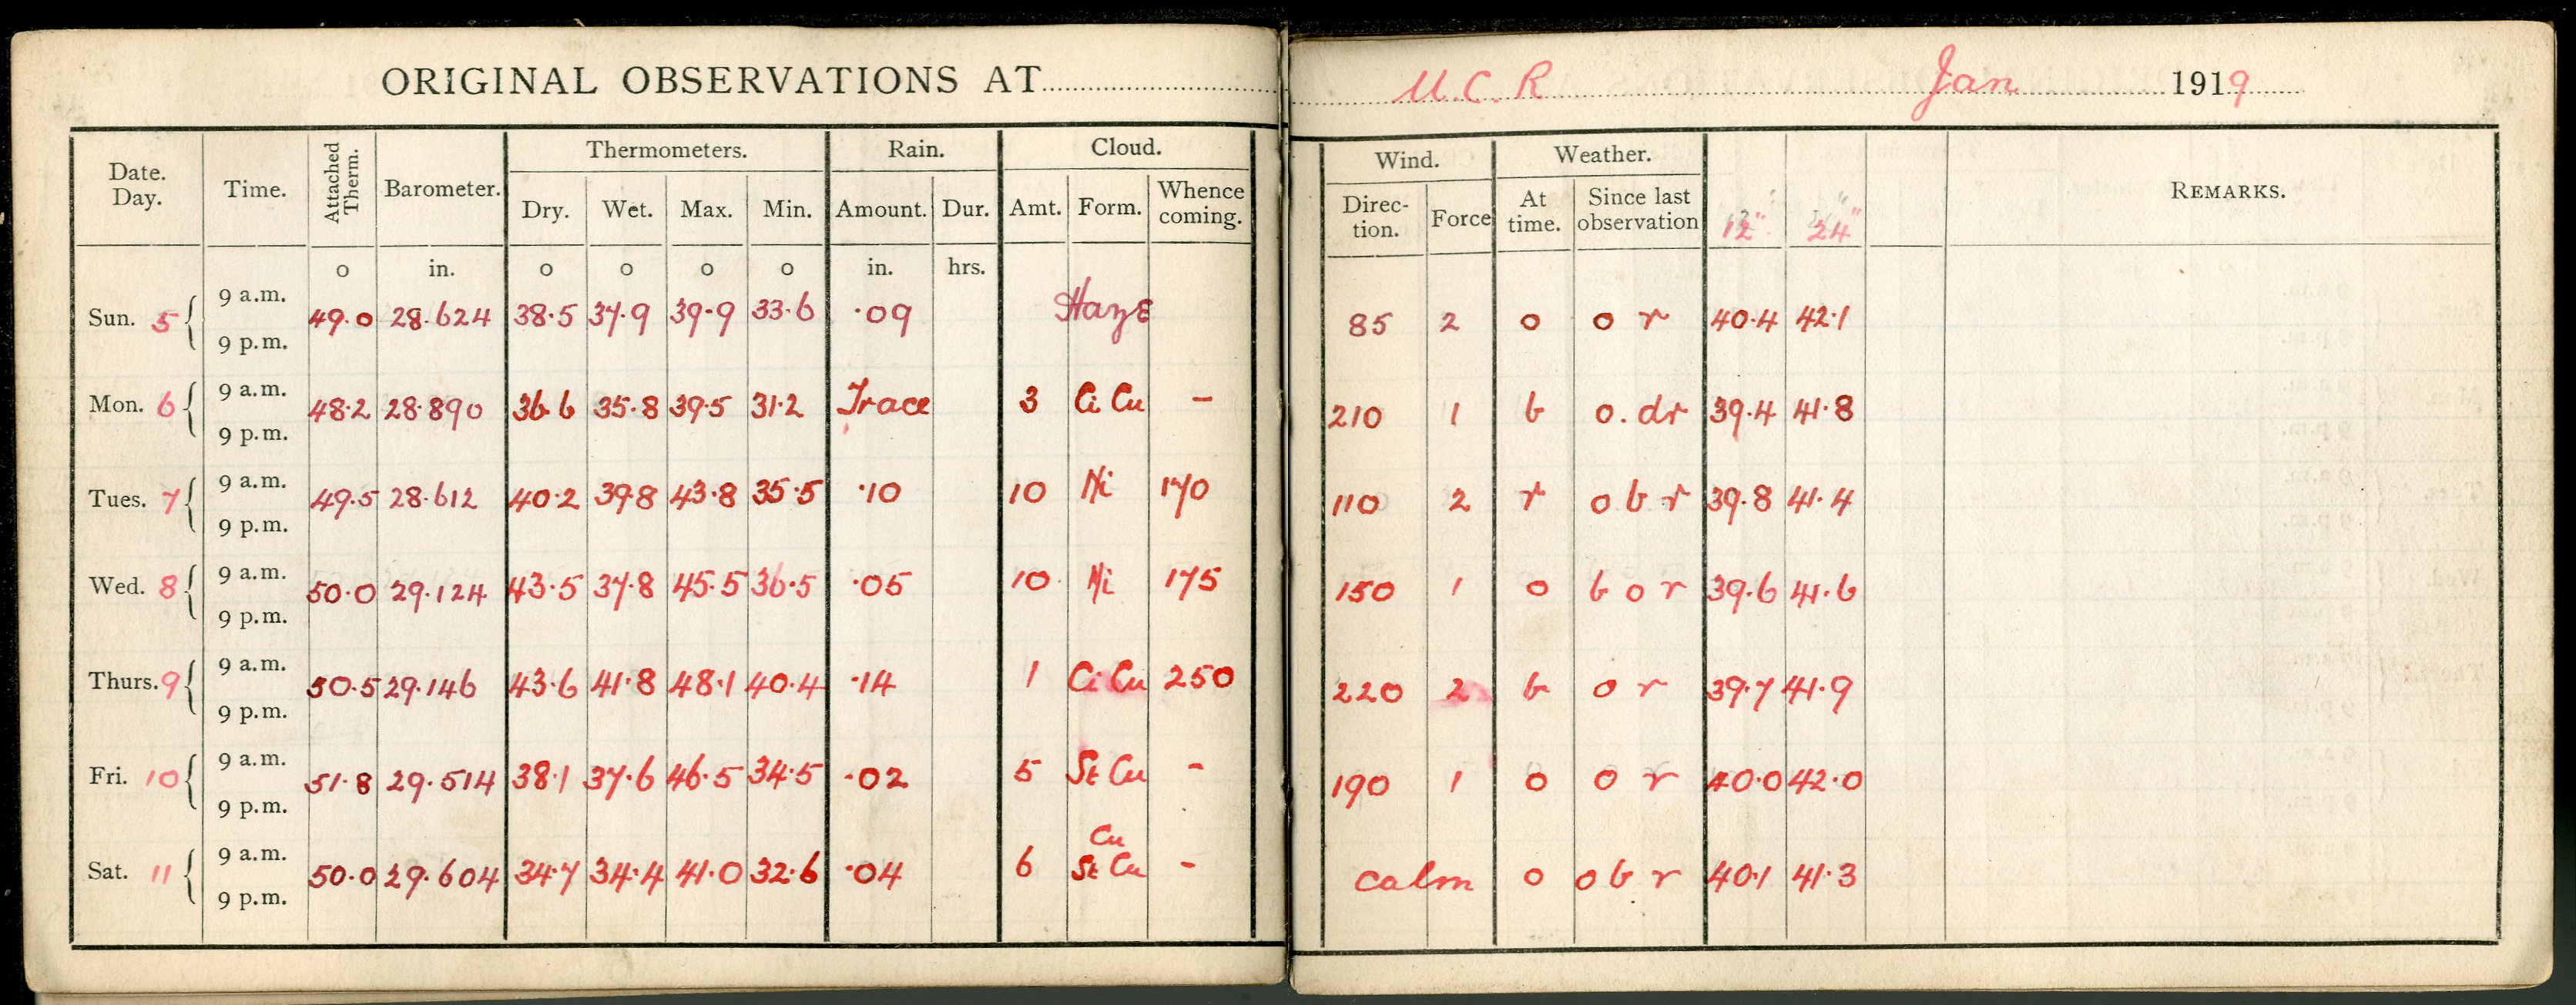 ORIGINAL OBSERVATIONS AT U.C.R Jan 1919
Date. Day. Time. Attached Therm. Barometer. Thermometers. Rain. Cloud. Wind. Weather.
Dry. Wet. Max. Min. Amount. Dur. Amt. Form. Whence coming. Direc- tion. Force At time. Since last observation 12" 24" REMARKS.
o in. o o o o in. hrs.
Sun. 5 9 a.m. 9 p.m. 49.0 28.624 38.5 37.9 39.9 33.6 .09 Haze 85 2 o o r 40.4 42.1
Mon. 6 9 a.m. 9 p.m. 48.2 28.890 36.6 35.8 39.5 31.2 Trace 3 Ci Cu - 210 1 b o.dr 39.4 41.8
Tues. 7 9 a.m. 9 p.m. 49.5 28.612 40.2 39.8 43.8 35.5 .10 10 Ni 170 110 2 r o b r 39.8 41.4
Wed. 8 9 a.m. 9 p.m. 50.0 29.124 43.5 37.8 45.5 36.5 .05 10 Ni 175 150 1 o b o r 39.6 41.6
Thurs. 9 9 a.m. 9 p.m. 50.5 29.146 43.6 41.8 48.1 40.4 .14 1 Ci Cu 250 220 2 b o r 39.7 41.9
Fri. 10 9 a.m. 9 p.m. 51.8 29.514 38.1 37.6 46.5 34.5 .02 5 St Cu - 190 1 o o r 40.0 42.0
Sat. 11 9 a.m. 9 p.m. 50.0 29.604 34.7 34.4 41.0 32.6 .04 6 Cu St Cu - calm o o b r 40.1 41.3